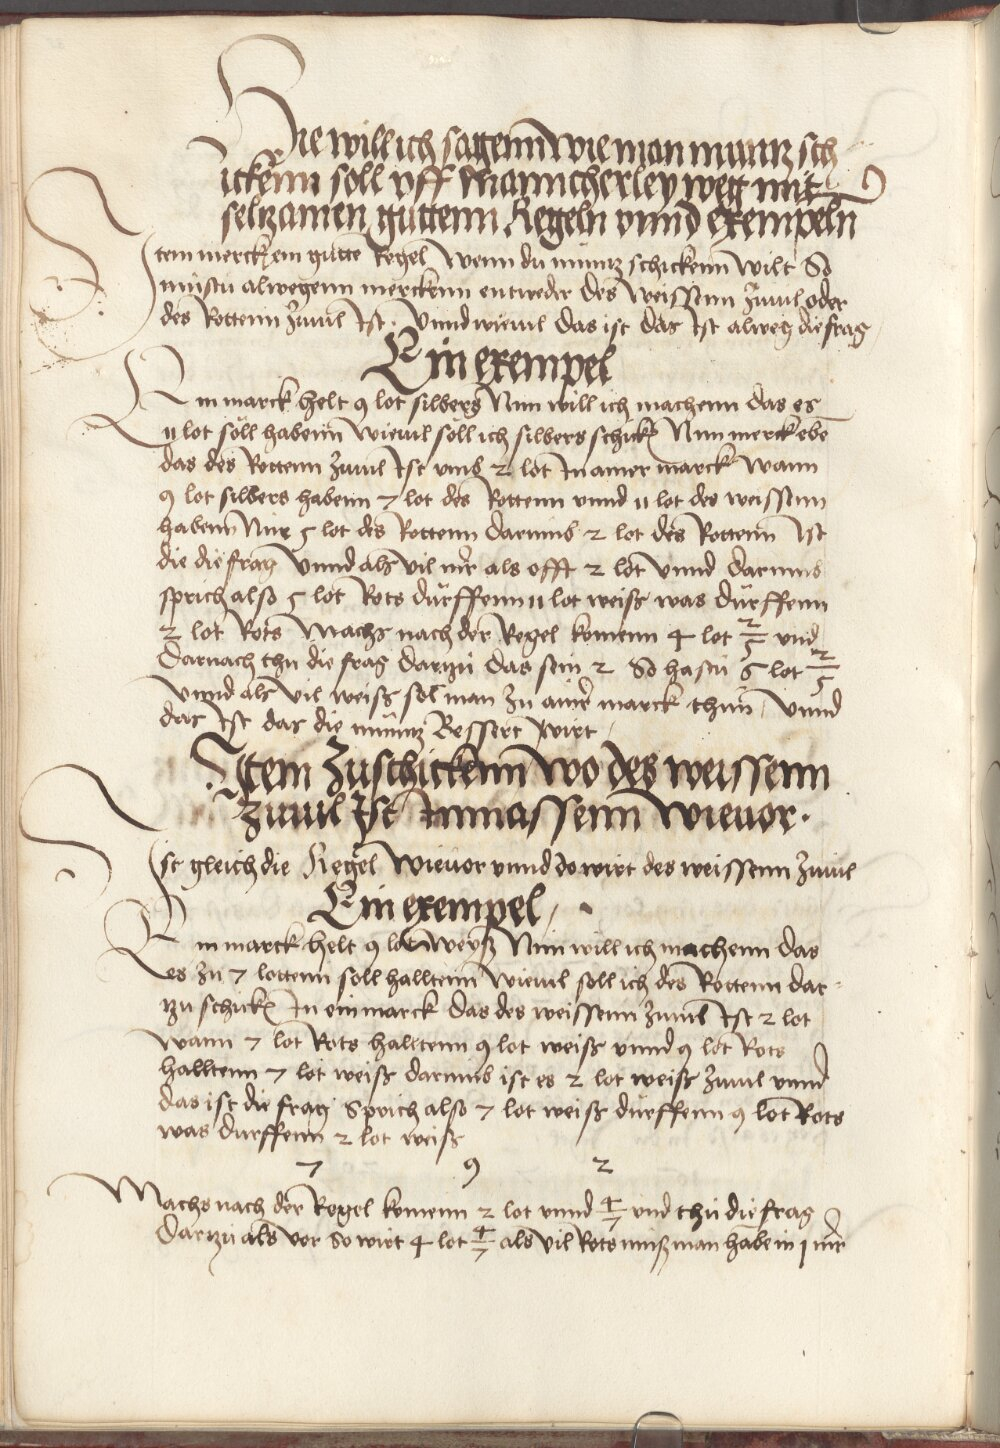 Hie will ich sagenn wie man muntz sch
ickenn soll vff Mannicherley weg mit
seltzamen guttenn Regeln vnnd exempeln
Item merck ein gutte Regel Wenn du müntz schickenn wilt So
mustu alwegenn merckenn entweder des Weissenn Zuuil oder
des Rottenn Zuuil Ist. Vnnd wieuil das ist das Ist alweg die frag
Ein exempel
Ein marck helt 9 lot silbers Nun will ich machenn das es
11 lot soll habenn Wieuil soll ich silbers schickē Nun merck ebē
das des Rottenn Zuuil Ist vmb 2 lot In ainer marck Wann
9 lot silbers habenn 7 lot des Rottenn vnnd 11 lot des weissenn
habenn Nur 5 lot des Rottenn darumb 2 lot des Rottenn Ist
die die frag Vnnd als vil mr als offt 2 lot Vnnd darumb
sprich also 5 lot Rots dürffenn 11 lot weiß was dürffenn
2 lot Rots Machs nach der Regel komenn 4 lot 2/5 vnd
Darnach thu die frag dartzu das sein 2 So hastu 6 lot 2/5
Vnnd als vil weiß sol man zu ainer marck thun, Vnnd
das Ist das die müntz Bessert wirt,
Item Zuschickenn wo des weissenn
Zuuil Ist Inmassenn wieuor.
Ist gleich die Regel wieuor vnnd so wirt des weissenn Zuuil
Ein exempel,
Ein marck helt 9 lot weyß Nun will ich machenn das
es zu 7 lottenn soll halltenn Wieuil soll ich des Rottenn dar-
tzu schickē In ein marck das des weissenn Zuuil Ist 2 lot
Wann 7 lot Rots halltenn 9 lot weiß vnnd 9 lot Rots
halltenn 7 lot weiß darumb ist es 2 lot weiß Zuuil vnnd
das ist die frag Sprich also 7 lot weiß dürffenn 9 lot Rots
was durffenn 2 lot weiß
7 9 2
Machs nach der Regel komenn 2 lot vnnd 4/7 vnd thu die frag
Dartzu als vor so wirt 4 lot 4/7 als vil Rots muß man habe in 1 mr